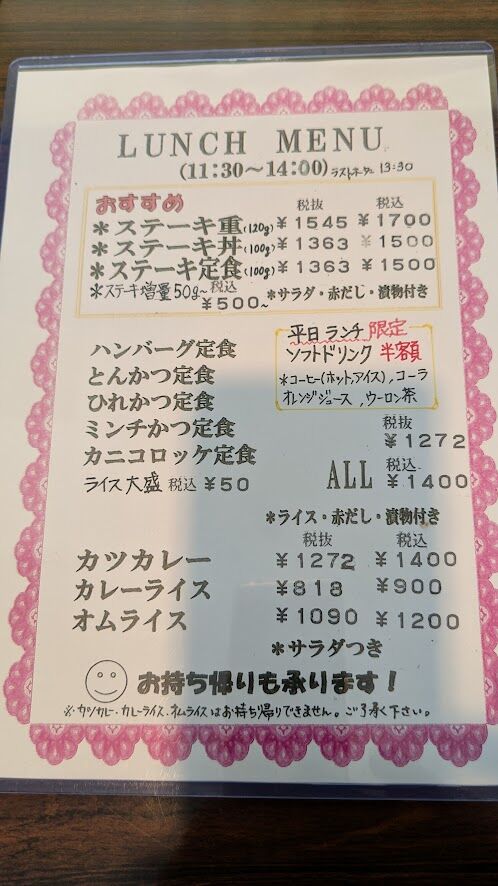 LUNCH MENU
(11:30～14:00) ラストオーダー 13:30
おすすめ 税抜 税込
＊ステーキ重(120g) ¥1545 ¥1700
＊ステーキ丼(100g) ¥1363 ¥1500
＊ステーキ定食(100g) ¥1363 ¥1500
＊ステーキ増量50g~ 税込 ¥500~
＊サラダ・赤だし・漬物付き
平日ランチ限定
ソフトドリンク 半額
＊コーヒー(ホット,アイス),コーラ
オレンジジュース,ウーロン茶
ハンバーグ定食
とんかつ定食
ひれかつ定食
ミンチかつ定食
カニコロッケ定食
税抜
¥1272
ALL 税込
¥1400
ライス大盛 税込 ¥50
＊ライス・赤だし・漬物付き
税抜 税込
カツカレー ¥1272 ¥1400
カレーライス ¥818 ¥900
オムライス ¥1090 ¥1200
＊サラダつき
お持ち帰りも承ります！
※カツカレー.カレーライス.オムライスはお持ち帰りできません。ご了承下さい。